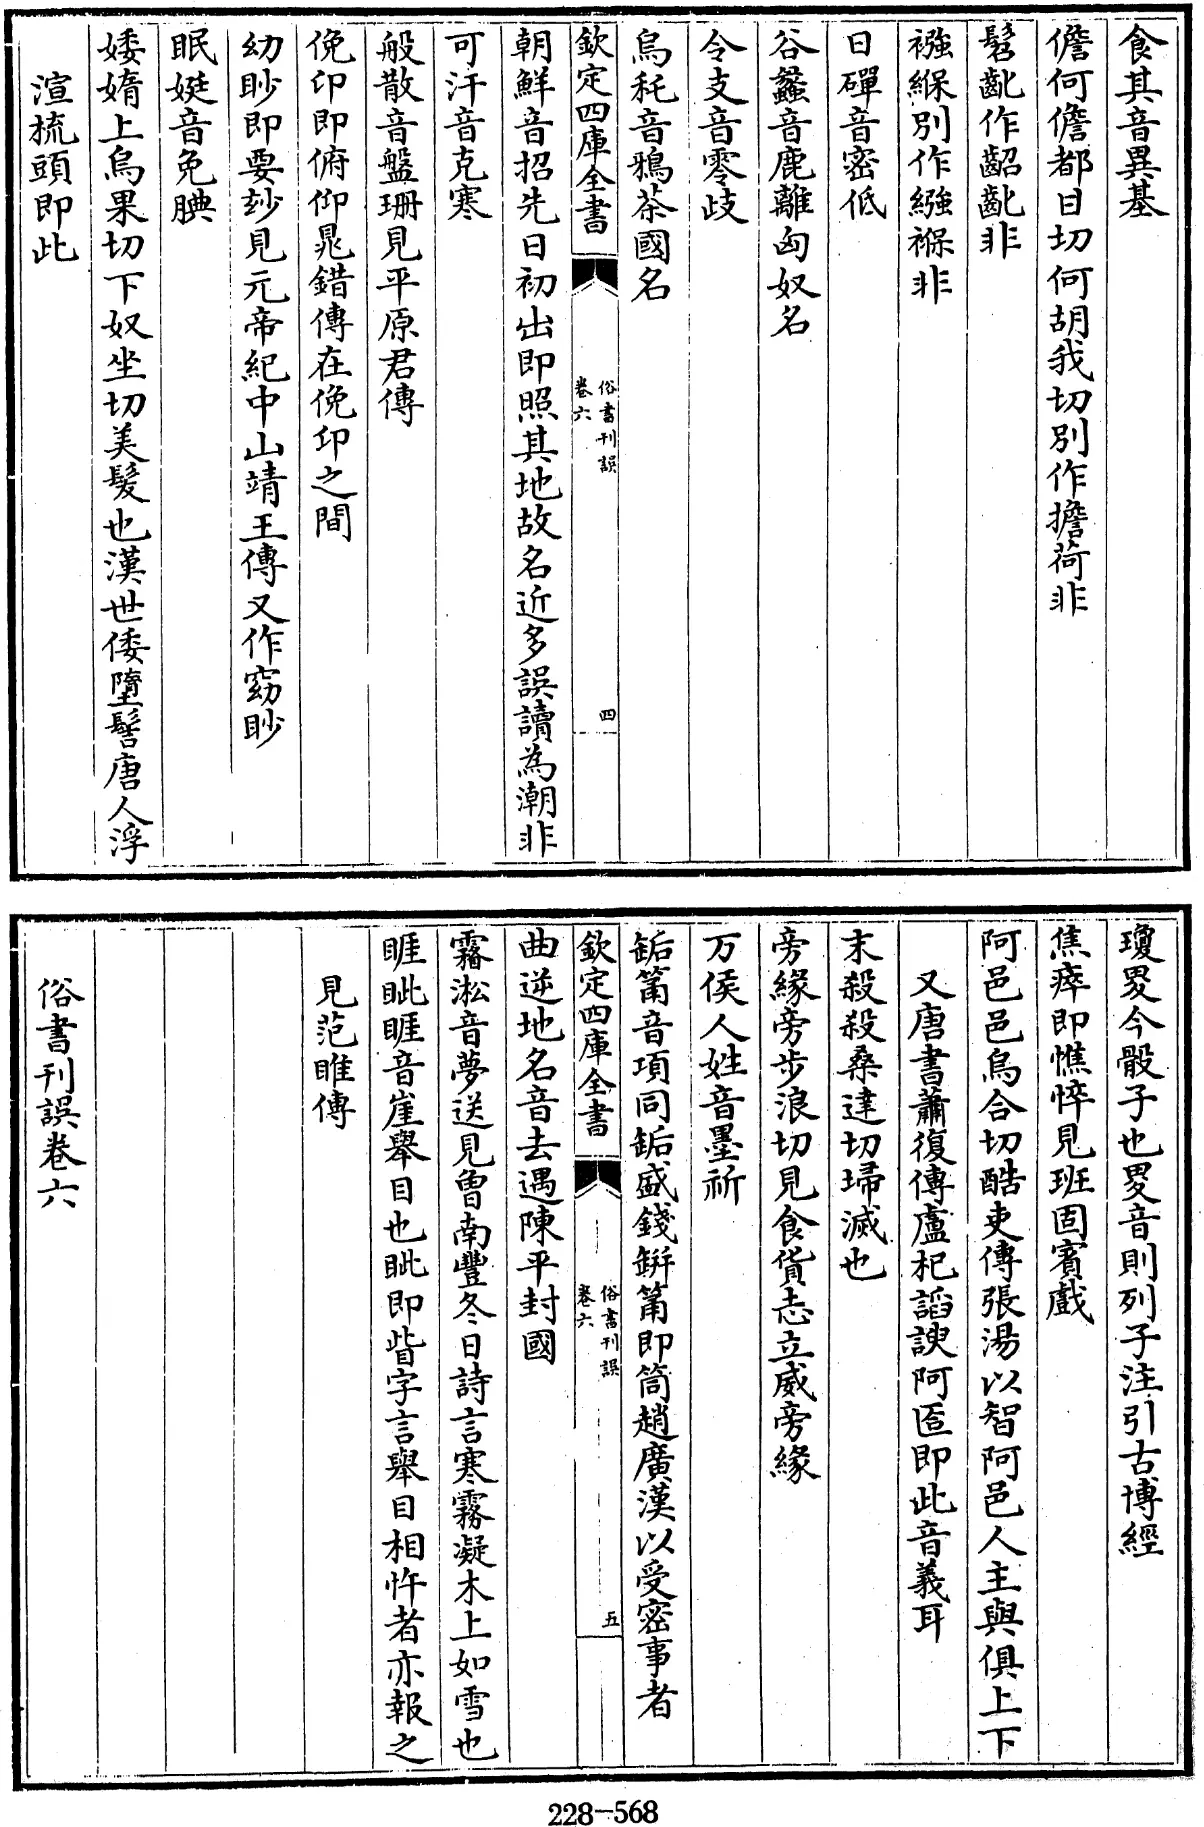 食其音異基
儋何儋都日切何胡我切別作擔荷非
髫齔作齠齔非
襁緥別作繈褓非
日磾音密低
谷蠡音鹿離匈奴名
令支音零歧
烏秅音鴉茶國名
欽定四庫全書
俗書刊誤
卷六
四
朝鮮音招先日初出即照其地故名近多誤讀為潮非
可汗音克寒
般散音盤珊見平原君傳
俛卬即俯仰晁錯傳在俛卬之間
幼眇即要玅見元帝紀中山靖王傳又作窈眇
眠娗音免腆
婑媠上烏果切下奴坐切美髮也漢世倭墮髻唐人浮
渲梳頭即此
瓊畟今骰子也畟音則列子注引古博經
焦瘁即憔悴見班固賓戲
阿邑邑烏合切酷吏傳張湯以智阿邑人主與俱上下
又唐書蕭復傳盧杞謟諛阿匼即此音義耳
末殺殺桑達切埽滅也
旁緣旁步浪切見食貨志立威旁緣
万俟人姓音墨祈
缿筩音項同缿盛錢缾筩即筒趙廣漢以受密事者
欽定四庫全書
俗書刊誤
卷六
五
曲逆地名音去遇陳平封國
霿淞音夢送見曾南豐冬日詩言寒霧凝木上如雪也
睚眦睚音崖舉目也眦即眥字言舉目相忤者亦報之
見范雎傳
俗書刊誤卷六
228-568